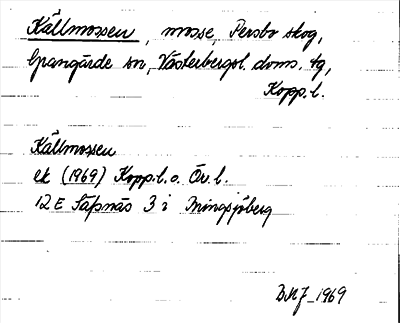 Källmossen, mosse, Persbo skog,
Grangärde sn, Västerbergsl. doms. tg,
Kopp. l.
Källmossen
ek (1969) Kopp. l. o. Ör. l.
12 E Säfsnäs 3 i
1969